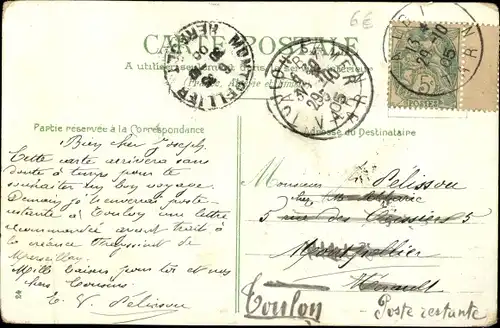 6€
CARTE POSTALE
A utiliser seulement
Partie réservée à la Correspondance
Adresse du Destinataire
MONTPELLIER
HERAULT
TOULON-S-MER
VAR
29-10
05
VAR
5
POSTES
Bien cher Joseph,
Cette carte arrivera sans
doute à temps pour te
souhaiter un bon voyage.
Demain je t'enverrai poste-
restante à Toulon une lettre
recommandée ayant trait à
la créance
Marseille
Mille baisers pour toi et nos
chers Cousins
E. V. Pélissou
Monsieur Pélissou
chez
5 rue des 5
Montpellier
Hérault
Toulon - Poste restante